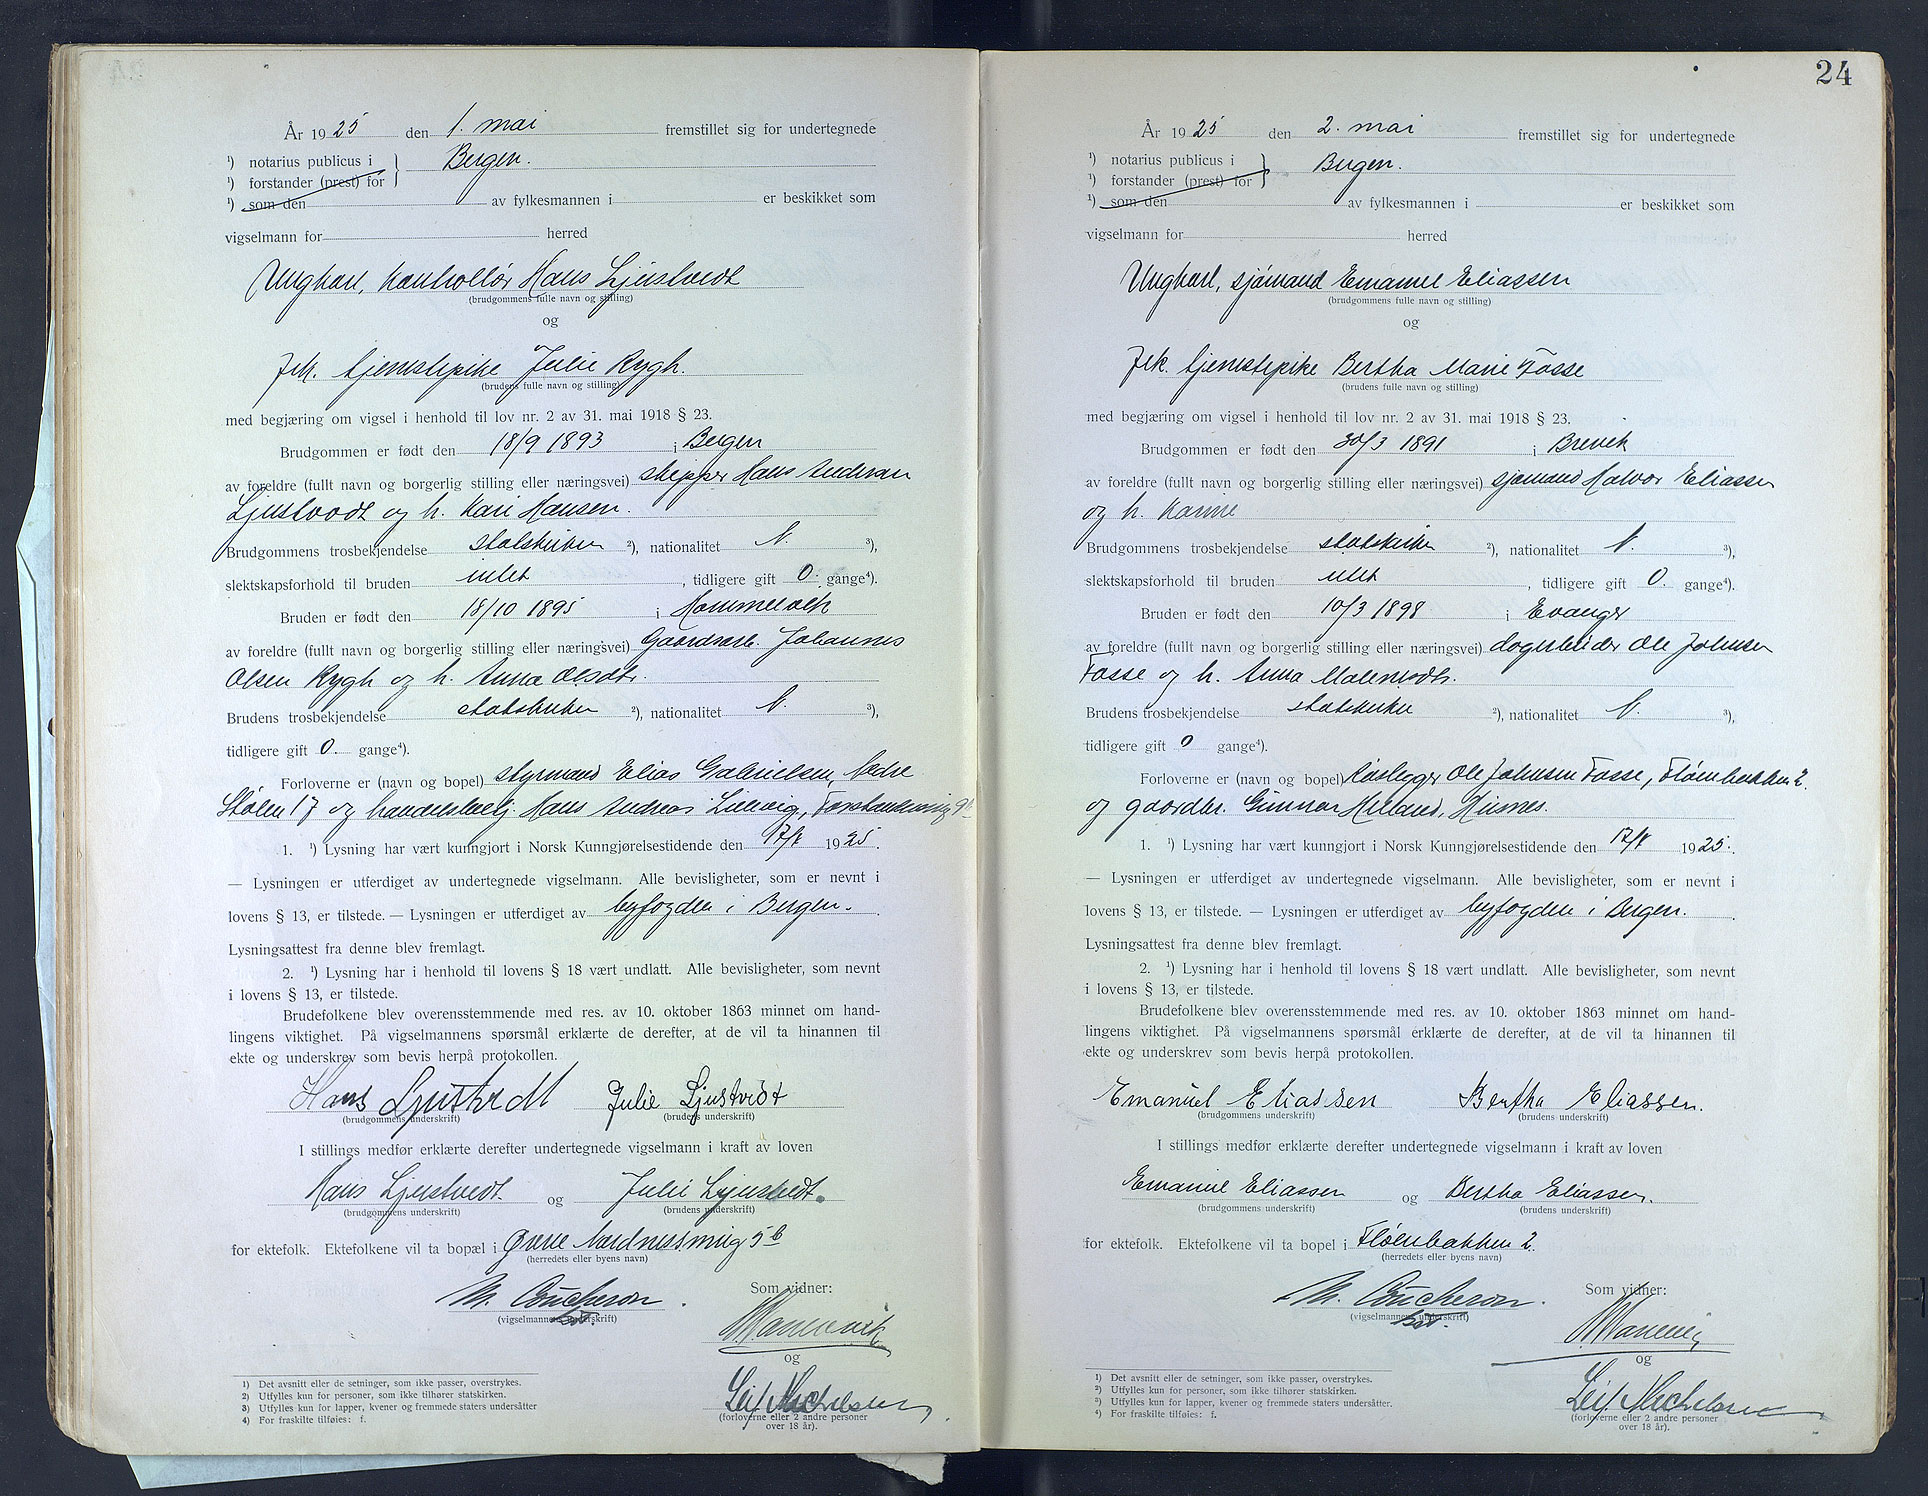 År 1925 den 1. mai fremstillet sig for undertegnede
¹) notarius publicus i } Bergen.
¹) forstander (prest) for
¹) som den av fylkesmannen i er beskikket som
vigselmann for herred
Ungkarl, kontrollør Hans Ljustvedt
(brudgommens fulle navn og stilling)
og
Frk. tjenestepike Julie Rygh.
(brudens fulle navn og stilling)
med begjæring om vigsel i henhold til lov nr. 2 av 31. mai 1918 § 23.
Brudgommen er født den 18/9 1893 i Bergen
av foreldre (fullt navn og borgerlig stilling eller næringsvei) skipper Hans Andersen
Ljustvedt og h. Kari Hansen.
Brudgommens trosbekjendelse statskirken ²), nationalitet N. ³),
slektskapsforhold til bruden intet , tidligere gift 0. gange⁴).
Bruden er født den 18/10 1895 i Hommelvik
av foreldre (fullt navn og borgerlig stilling eller næringsvei) Gaardsarb. Johannes
Olsen Rygh og h. Anna Olsdtr.
Brudens trosbekjendelse statskirken ²), nationalitet N. ³),
tidligere gift 0. gange⁴).
Forloverne er (navn og bopel) styrmand Elias Gabrielsen, Nedre
Stølen 17 og handelsbetj. Hans Andreas
1. ¹) Lysning har vært kunngjort i Norsk Kunngjørelsestidende den 17/4 1925.
— Lysningen er utferdiget av undertegnede vigselmann. Alle bevisligheter, som er nevnt i
lovens § 13, er tilstede. — Lysningen er utferdiget av byfogden i Bergen.
Lysningsattest fra denne blev fremlagt.
2. ¹) Lysning har i henhold til lovens § 18 vært undlatt. Alle bevisligheter, som nevnt
i lovens § 13, er tilstede.
Brudefolkene blev overensstemmende med res. av 10. oktober 1863 minnet om hand-
lingens viktighet. På vigselmannens spørsmål erklærte de derefter, at de vil ta hinannen til
ekte og underskrev som bevis herpå protokollen.
Hans Ljustvedt Julie Ljustvedt
(brudgommens underskrift) (brudens underskrift)
I stillings medfør erklærte derefter undertegnede vigselmann i kraft av loven
Hans Ljustvedt og Julie Ljustvedt.
(brudgommens underskrift) (brudens underskrift)
for ektefolk. Ektefolkene vil ta bopæl i Øvre Nordnesmug 5b
(herredets eller byens navn)
M. Coucheron
(vigselmannens underskrift)
Som vidner:
og
Leif Michelsen.
(forloverne eller 2 andre personer
over 18 år).
1) Det avsnitt eller de setninger, som ikke passer, overstrykes.
2) Utfylles kun for personer, som ikke tilhører statskirken.
3) Utfylles kun for lapper, kvener og fremmede staters undersåtter
4) For fraskilte tilføies: f.
24
År 1925 den 2. mai fremstillet sig for undertegnede
¹) notarius publicus i } Bergen.
¹) forstander (prest) for
¹) som den av fylkesmannen i er beskikket som
vigselmann for herred
Ungkarl, sjømand Emanuel Eliassen
(brudgommens fulle navn og stilling)
og
Frk. tjenestepike Bertha Marie Fosse
(brudens fulle navn og stilling)
med begjæring om vigsel i henhold til lov nr. 2 av 31. mai 1918 § 23.
Brudgommen er født den 30/3 1891 i Brevik
av foreldre (fullt navn og borgerlig stilling eller næringsvei) sjømand Halvor Eliassen
og h. Karine
Brudgommens trosbekjendelse statskirken ²), nationalitet N. ³),
slektskapsforhold til bruden intet , tidligere gift 0. gange⁴).
Bruden er født den 10/3 1898 i Evanger
av foreldre (fullt navn og borgerlig stilling eller næringsvei) dagarbeider Ole Johnsen
Fosse og h. Anna
Brudens trosbekjendelse statskirken ²), nationalitet N. ³),
tidligere gift 0 gange⁴).
Forloverne er (navn og bopel) Ole Johnsen Fosse, Fløenbakken 2.
og gaardbr. Gunnar
1. ¹) Lysning har vært kunngjort i Norsk Kunngjørelsestidende den 17/4 1925.
— Lysningen er utferdiget av undertegnede vigselmann. Alle bevisligheter, som er nevnt i
lovens § 13, er tilstede. — Lysningen er utferdiget av byfogden i Bergen.
Lysningsattest fra denne blev fremlagt.
2. ¹) Lysning har i henhold til lovens § 18 vært undlatt. Alle bevisligheter, som nevnt
i lovens § 13, er tilstede.
Brudefolkene blev overensstemmende med res. av 10. oktober 1863 minnet om hand-
lingens viktighet. På vigselmannens spørsmål erklærte de derefter, at de vil ta hinannen til
ekte og underskrev som bevis herpå protokollen.
Emanuel Eliassen Bertha Eliassen.
(brudgommens underskrift) (brudens underskrift)
I stillings medfør erklærte derefter undertegnede vigselmann i kraft av loven
Emanuel Eliassen og Bertha Eliassen.
(brudgommens underskrift) (brudens underskrift)
for ektefolk. Ektefolkene vil ta bopel i Fløenbakken 2.
(herredets eller byens navn)
M. Coucheron.
(vigselmannens underskrift)
Som vidner:
og
Leif Michelsen
(forloverne eller 2 andre personer
over 18 år).
1) Det avsnitt eller de setninger, som ikke passer, overstrykes.
2) Utfylles kun for personer, som ikke tilhører statskirken.
3) Utfylles kun for lapper, kvener og fremmede staters undersåtter.
4) For fraskilte tilføies: f.